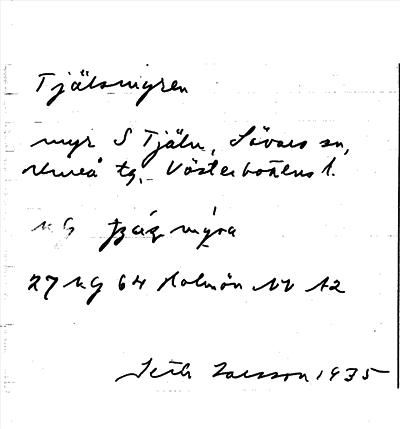 Tjälsmyren
myr S Tjäln, Sävars sn,
Umeå tg. Västerbottens l.
myra
27 Mg 64 Holmön NV A2
Seth Larsson 1935